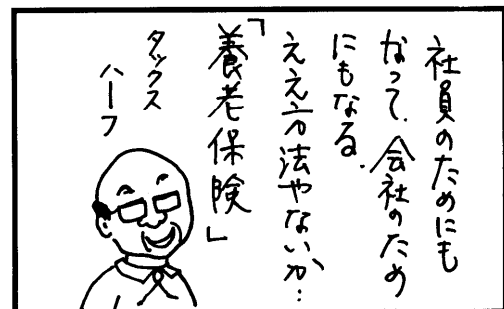 社員のためにも
なって、会社のため
にもなる、
ええ方法やないか…
「養老保険」
タックス
ハーフ